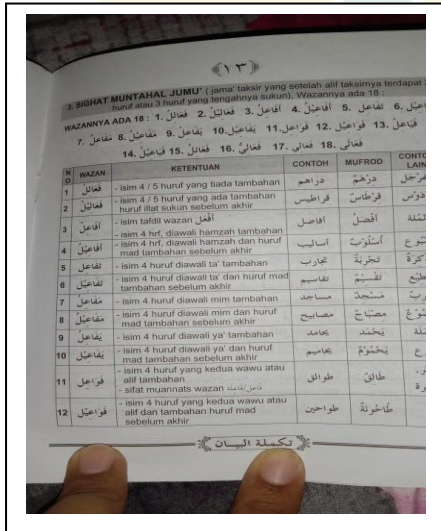 ﴿١٣﴾
3. SIGHAT MUNTAHAL JUMU' ( jama' taksir yang setelah alif taksirnya terdapat
huruf atau 3 huruf yang tengahnya sukun), Wazannya ada 18 :
WAZANNYA ADA 18 : 1. فَعَالِلُ 2. فَعَالِيْلُ 3. أَفَاعِلُ 4. أَفَاعِيْلُ 5. تَفَاعِلُ 6.
7. مَفَاعِلُ 8. مَفَاعِيْلُ 9. يَفَاعِلُ 10. يَفَاعِيْلُ 11. فَوَاعِلُ 12. فَوَاعِيْلُ 13. فَيَاعِلُ
14. فَيَاعِيْلُ 15. فَعَائِلُ 16. فَعَالِيُّ 17. فَعَالِي 18. فَعَالَى
NO WAZAN KETENTUAN CONTOH MUFROD CONTO LAIN
1 فَعَالِلُ - isim 4 / 5 huruf yang tiada tambahan دراهم دِرْهَمٌ
2 فَعَالِيْلُ - isim 4 / 5 huruf yang ada tambahan huruf illat sukun sebelum akhir قراطيس قِرْطَاسٌ
3 أَفَاعِلُ - isim tafdil wazan أَفْعَلُ - isim 4 hrf, diawali hamzah tambahan أفاضل أَفْضَلُ
4 أَفَاعِيْلُ - isim 4 hrf, diawali hamzah dan huruf mad tambahan sebelum akhir أساليب أُسْلُوْبٌ
5 تَفَاعِلُ - isim 4 huruf diawali ta' tambahan تجارب تَجْرِبَةٌ
6 تَفَاعِيْلُ - isim 4 huruf diawali ta' dan huruf mad tambahan sebelum akhir تقاسيم تَقْسِيْمٌ
7 مَفَاعِلُ - isim 4 huruf diawali mim tambahan مساجد مَسْجِدٌ
8 مَفَاعِيْلُ - isim 4 huruf diawali mim dan huruf mad tambahan sebelum akhir مصابيح مِصْبَاحٌ
9 يَفَاعِلُ - isim 4 huruf diawali ya' tambahan يحامد يَحْمَدُ
10 يَفَاعِيْلُ - isim 4 huruf diawali ya' dan huruf mad tambahan sebelum akhir يحاميم يَحْمُوْمٌ
11 فَوَاعِلُ - isim 4 huruf yang kedua wawu atau alif tambahan - sifat muannats wazan فاعل/فاعلة طوالق طَالِقٌ
12 فَوَاعِيْلُ - isim 4 huruf yang kedua wawu atau alif dan tambahan huruf mad sebelum akhir طواحين طَاحُوْنَةٌ
تكملة البيان